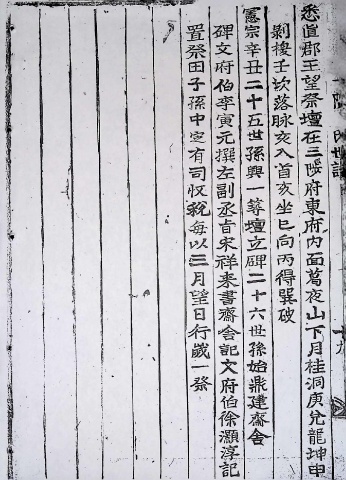 悉直郡王望祭壇在三陟府東府內面葛夜山下月桂洞庚兌龍坤申
剝換壬坎落脉亥入首亥坐巳向丙得巽破
憲宗辛丑二十五世孫興一築壇立碑二十六世孫始鼎建齋舍
碑文府伯李寅元撰左副丞旨宋祥來書齋舍記文府伯徐灝淳記
置祭田子孫中定有司收稅每以三月望日行歲一祭